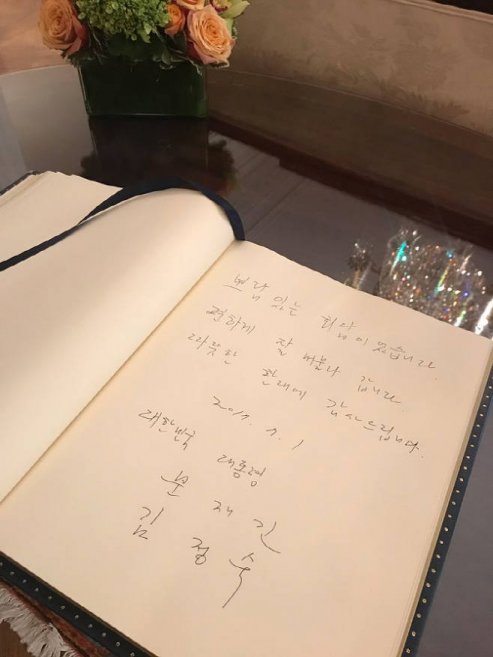 보람 있는 회담이 었습니다.
편하게 잘 머물다 갑니다.
따뜻한 환대에 감사드립니다.
2017. 7. 1
대한민국 대통령
문 재 인
김 정 숙